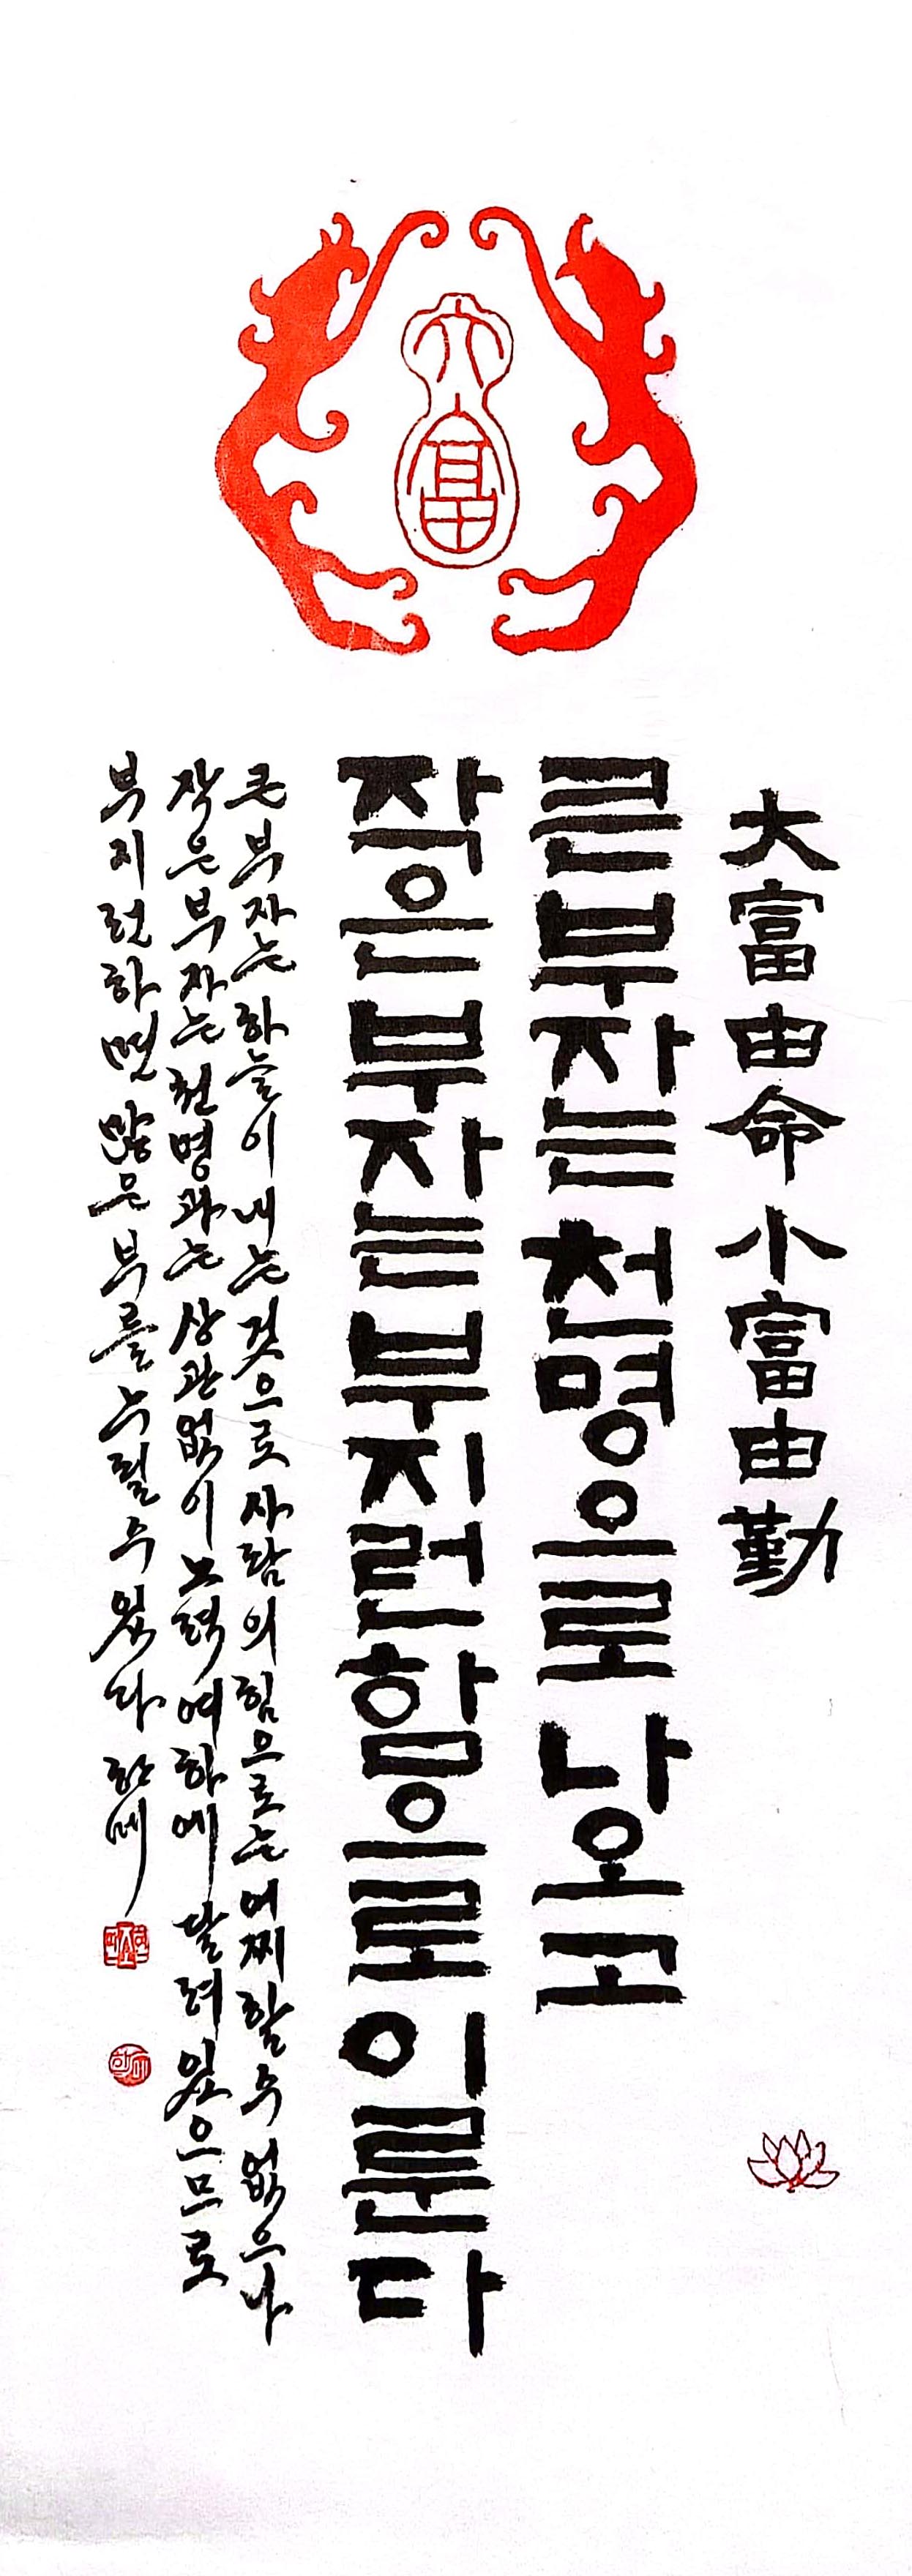 大富
大富由命小富由勤
큰부자는천명으로 나오고
작은부자는부지런함으로 이룬다
큰부자는 하늘이 내는 것으로 사람의 힘으로는 어찌할 수 없으나
작은 부자는 천명과는 상관없이 노력 여하에 달려 있으므로
부지런하면 많은 부를 누릴 수 있다 한메